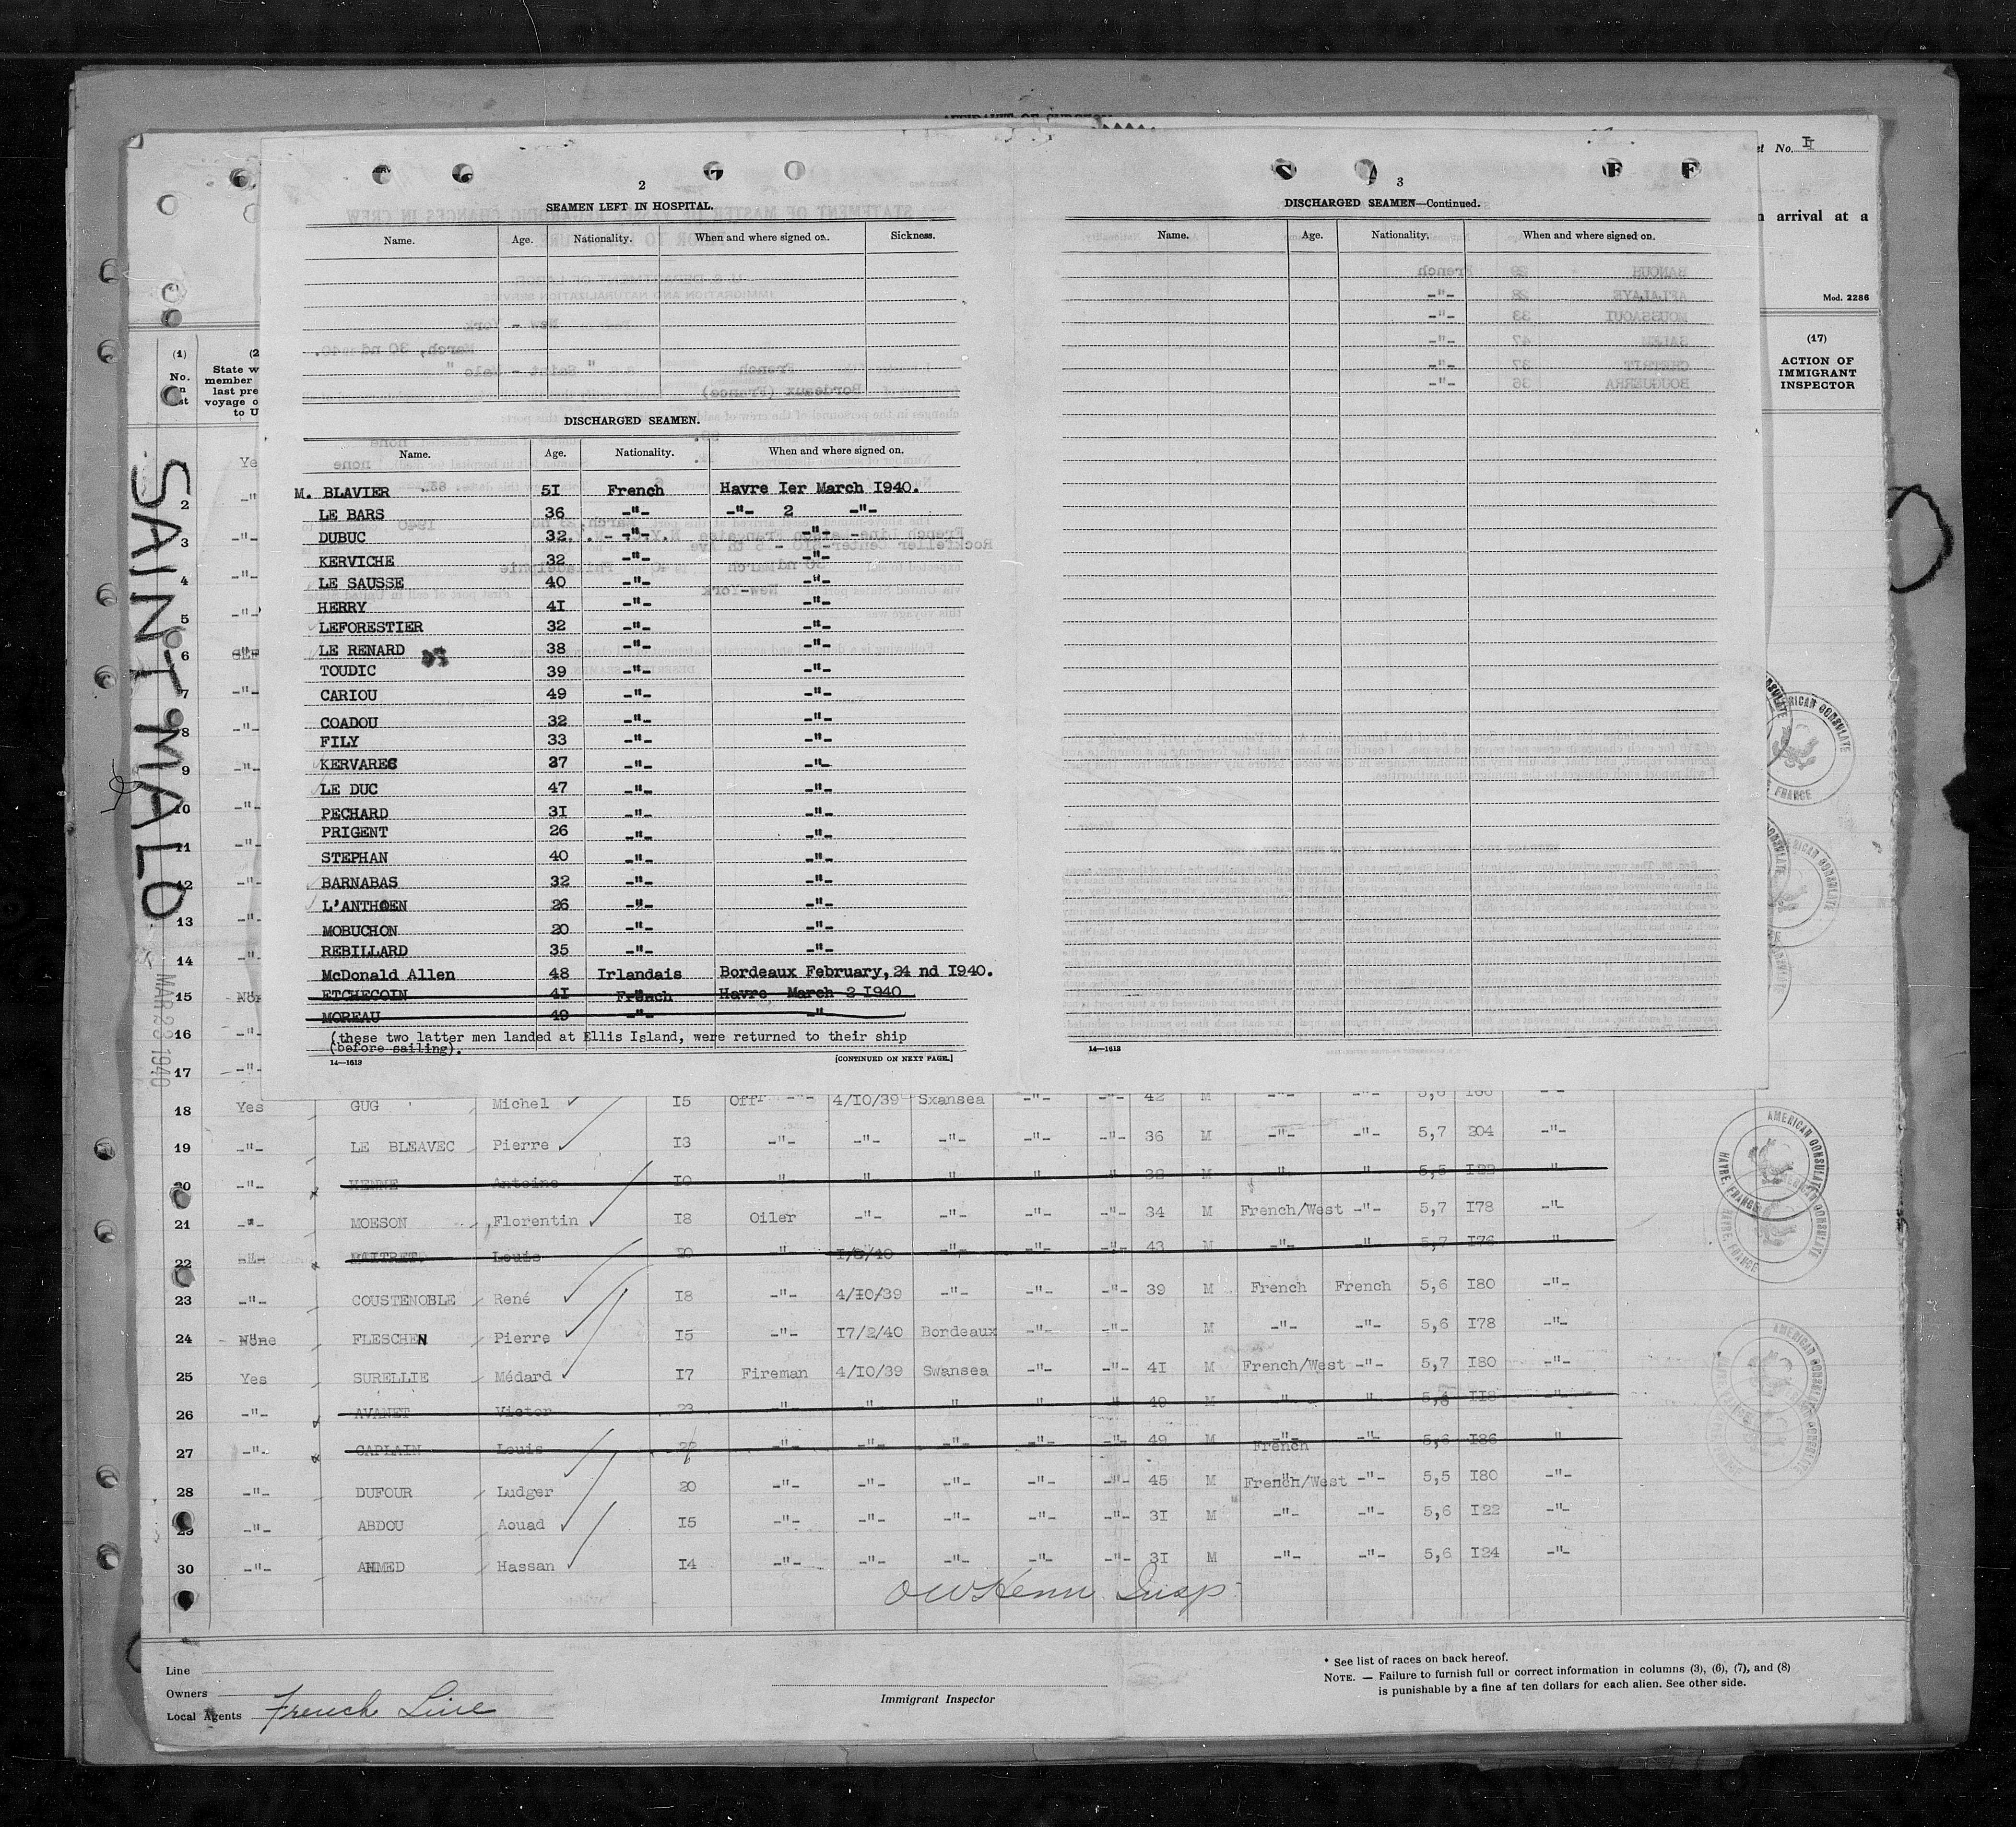 2
SEAMEN LEFT IN HOSPITAL.
Name. Age. Nationality. When and where signed on. Sickness.
DISCHARGED SEAMEN.
Name. Age. Nationality. When and where signed on.
M. BLAVIER 5I French Havre Ier March I940.
LE BARS 36 -"- -"- 2 -"-
DUBUC 32 -"- -"-
KERVICHE 32 -"- -"-
LE SAUSSE 40 -"- -"-
HERRY 4I -"- -"-
LEFORESTIER 32 -"- -"-
LE RENARD 38 -"- -"-
TOUDIC 39 -"- -"-
CARIOU 49 -"- -"-
COADOU 32 -"- -"-
FILY 33 -"- -"-
KERVAREC 37 -"- -"-
LE DUC 47 -"- -"-
PECHARD 3I -"- -"-
PRIGENT 26 -"- -"-
STEPHAN 40 -"- -"-
BARNABAS 32 -"- -"-
L'ANTHOEN 26 -"- -"-
MOBUCHON 20 -"- -"-
REBILLARD 35 -"- -"-
McDonald Allen 48 Irlandais Bordeaux February, 24 nd I940.
ETCHECOIN 4I French Havre March 2 I940
MOREAU 49 -"- -"-
(these two latter men landed at Ellis Island, were returned to their ship
(before sailing).
14—1613 [CONTINUED ON NEXT PAGE.]
3
DISCHARGED SEAMEN—Continued.
Name. Age. Nationality. When and where signed on.
14—1613
No. II
arrival at a
Mod. 2286
(17)
ACTION OF
IMMIGRANT
INSPECTOR
(1)
No.
State
member
last
voyage
to
SAINT MALO
MAR 23 1940
Ye
2 -"-
3 -"-
4 -"-
5 -"-
6
7 -"-
8 -"-
9 -"-
10 -"-
11 -"-
12 -"-
13 -"-
14 -"-
15
16 -"-
17 -"-
18 Yes GUG Michel I5 Offr -"- 4/IO/39 Sxansea -"- -"- 42 M -"- -"- 5,6 -"-
19 -"- LE BLEAVEC Pierre I3 -"- -"- -"- -"- -"- 36 M -"- -"- 5,7 204 -"-
20 -"- Antoine I0 " " " " " 38 M " " 5,5 "
21 -"- MOESON Florentin I8 Oiler -"- -"- -"- -"- 34 M French/West -"- 5,7 I78 -"-
22 MAITRET Louis 20 " -"- -"- -"- 43 M -"- " 5,7 I76 "
23 -"- COUSTENOBLE René I8 -"- 4/IO/39 -"- -"- -"- 39 M French French 5,6 I80 -"-
24 None FLESCHEN Pierre I5 -"- I7/2/40 Bordeaux -"- -"- M -"- -"- 5,6 I78 -"-
25 Yes SURELLIE Médard I7 Fireman 4/IO/39 Swansea -"- -"- 4I M French/West -"- 5,7 I80 -"-
26 -"- AVANET Victor 23 -"- " -"- " " 49 M " " 5,6 II8 -"-
27 -"- CAPLAIN Louis 22 -"- -"- -"- -"- -"- 49 M French -"- 5,6 I86 "
28 -"- DUFOUR Ludger 20 -"- -"- -"- -"- -"- 45 M French/West -"- 5,5 I80 -"-
29 -"- ABDOU Aouad I5 -"- -"- -"- -"- -"- 3I M -"- -"- 5,6 I22 -"-
30 -"- AHMED Hassan I4 -"- -"- -"- -"- -"- 3I M -"- -"- 5,6 I24 -"-
Insp.
AMERICAN CONSULATE
HAVRE, FRANCE
Line
Owners
Local Agents French Line
Immigrant Inspector
* See list of races on back hereof.
NOTE. — Failure to furnish full or correct information in columns (3), (6), (7), and (8)
is punishable by a fine af ten dollars for each alien. See other side.